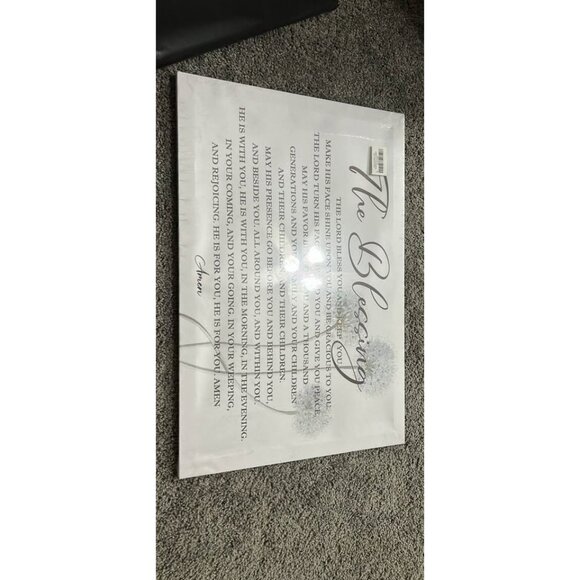 The Blessing
THE LORD BLESS YOU AND KEEP YOU
MAKE HIS FACE SHINE UPON YOU AND BE GRACIOUS TO YOU.
THE LORD TURN HIS FACE YOU AND GIVE YOU PEACE.
MAY HIS FAVOR YOU AND A THOUSAND
GENERATIONS AND YOUR FAMILY AND YOUR CHILDREN
AND THEIR CHILDREN, AND THEIR CHILDREN.
MAY HIS PRESENCE GO BEFORE YOU AND BEHIND YOU,
AND BESIDE YOU. ALL AROUND YOU, AND WITHIN YOU.
HE IS WITH YOU, HE IS WITH YOU, IN THE MORNING, IN THE EVENING.
IN YOUR COMING, AND YOUR GOING. IN YOUR WEEPING,
AND REJOICING. HE IS FOR YOU, HE IS FOR YOU. AMEN
Amen